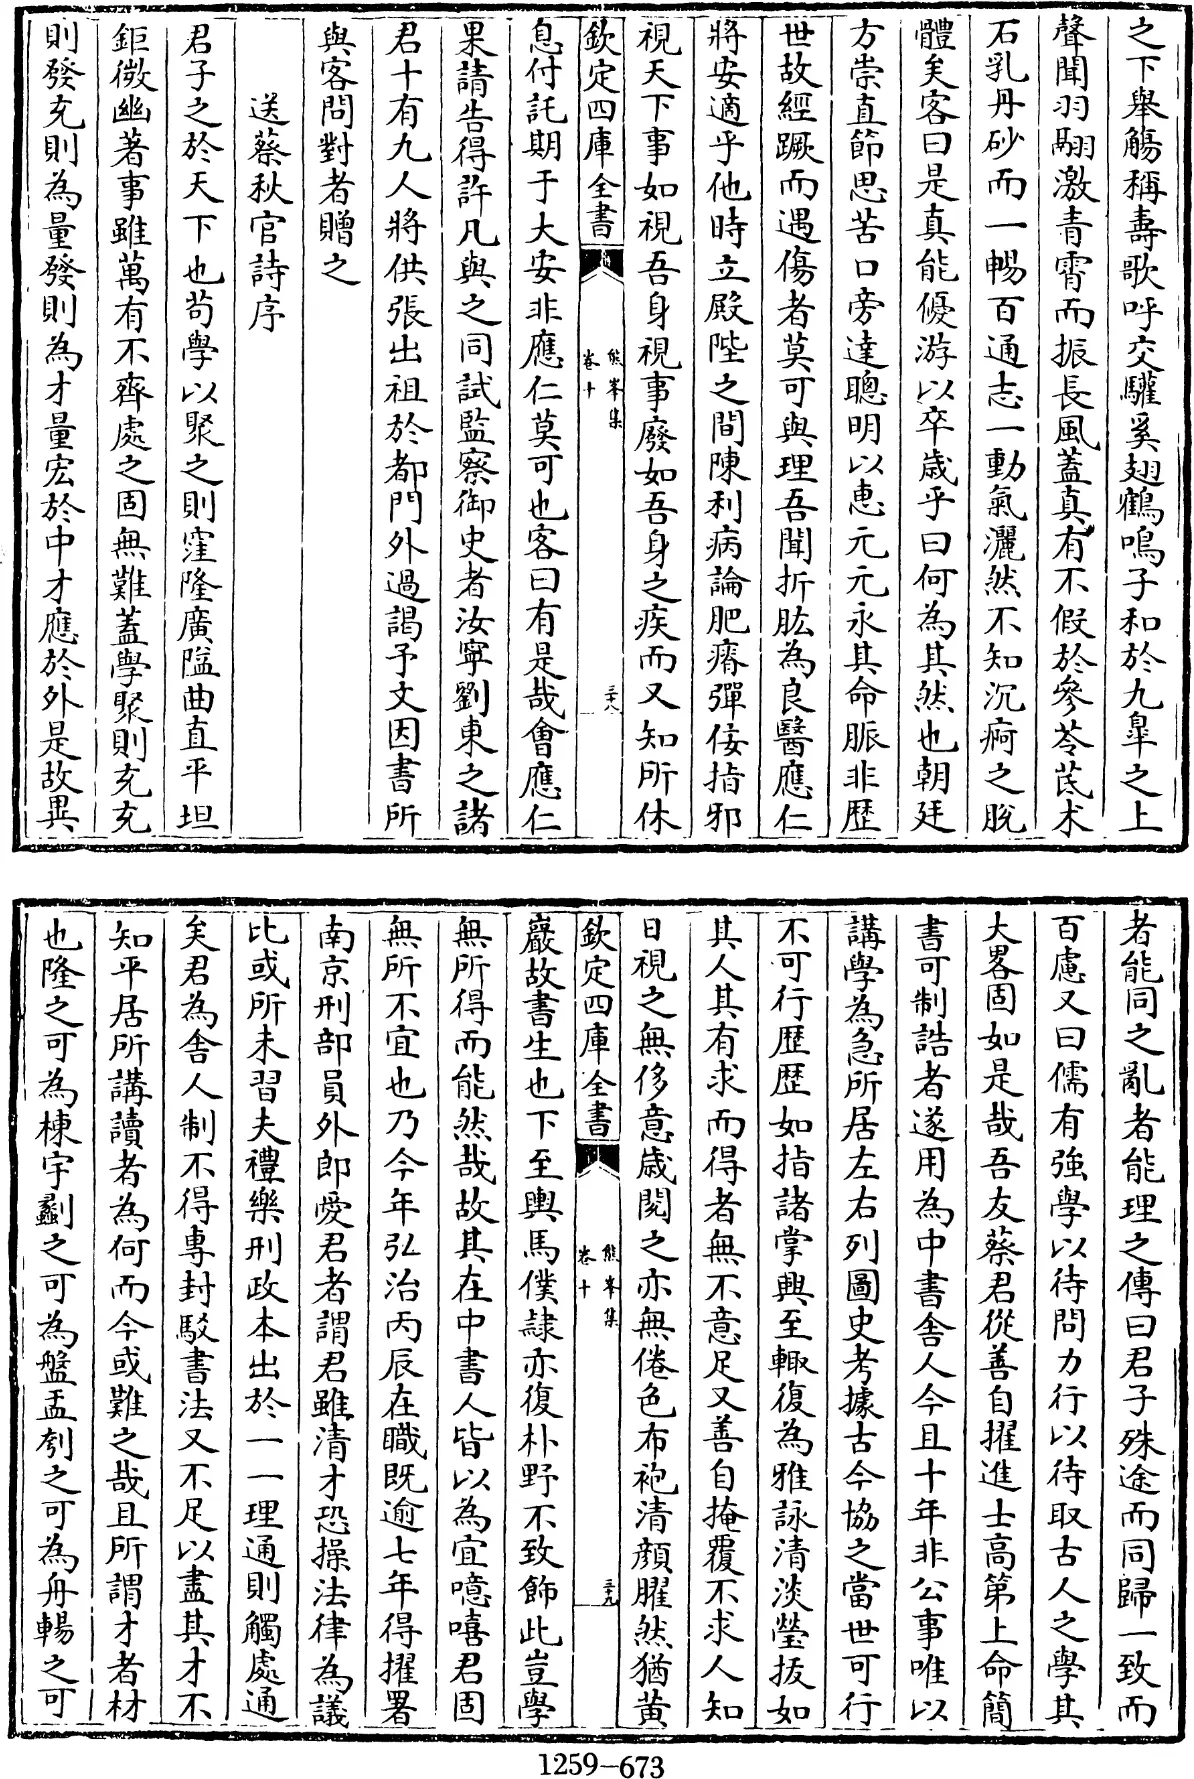 之下舉觴稱壽歌呼交驩奚翅鶴鳴子和於九臯之上
聲聞羽翮激青霄而振長風蓋真有不假於參苓茋术
石乳丹砂而一暢百通志一動氣灑然不知沉痾之脫
體矣客曰是真能優游以卒歲乎曰何為其然也朝廷
方崇直節思苦口旁達聰明以惠元元永其命脈非歷
世故經蹶而遇傷者莫可與理吾聞折肱為良醫應仁
將安適乎他時立殿陛之間陳利病論肥瘠彈佞指邪
視天下事如視吾身視事廢如吾身之疾而又知所休
欽定四庫全書
熊峯集
卷十
三十八
息付託期于大安非應仁莫可也客曰有是哉會應仁
果請告得許凡與之同試監察御史者汝寧劉東之諸
君十有九人將供張出祖於都門外過謁予文因書所
與客問對者贈之
送蔡秋官詩序
君子之於天下也茍學以聚之則窪隆廣隘曲直平坦
鉅微幽著事雖萬有不齊處之固無難蓋學聚則充充
則發充則為量發則為才量宏於中才應於外是故異
者能同之亂者能理之傳曰君子殊途而同歸一致而
百慮又曰儒有強學以待問力行以待取古人之學其
大畧固如是哉吾友蔡君從善自擢進士高第上命簡
書可制誥者遂用為中書舍人今且十年非公事唯以
講學為急所居左右列圖史考據古今協之當世可行
不可行歷歷如指諸掌興至輒復為雅詠清淡瑩拔如
其人其有求而得者無不意足又善自掩覆不求人知
日視之無侈意歲閱之亦無倦色布袍清顏臞然猶黃
欽定四庫全書
熊峯集
卷十
三十九
巖故書生也下至輿馬僕隷亦復朴野不致飾此豈學
無所得而能然哉故其在中書人皆以為宜噫嘻君固
無所不宜也乃今年弘治丙辰在職既逾七年得擢署
南京刑部員外郎愛君者謂君雖清才恐操法律為議
比或所未習夫禮樂刑政本出於一一理通則觸處通
矣君為舍人制不得專封駁書法又不足以盡其才不
知平居所講讀者為何而今或難之哉且所謂才者材
也隆之可為棟宇劙之可為盤盂刳之可為舟轊之可
1259-673